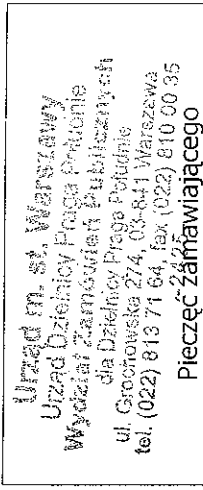 Urząd m. st. Warszawy
Urząd Dzielnicy Praga Południe
Wydział Zamówień Publicznych
dla Dzielnicy Praga Południe
ul. Grochowska 274, 03-841 Warszawa
tel. (022) 813 71 64, fax (022) 810 00 35
Pieczęć Zamawiającego